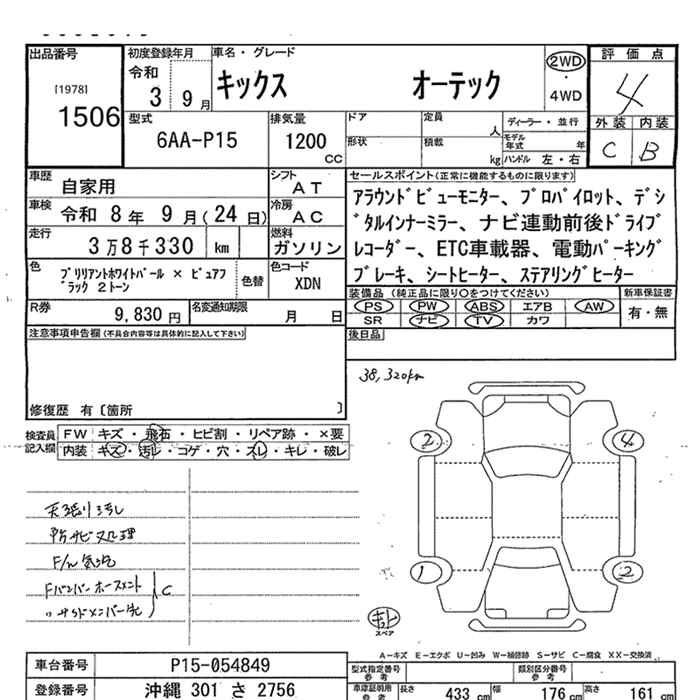 出品番号 初度登録年月 車名・グレード 評価点
[1978] 1506
令和 3 9月 キックス オーテック 2WD ・ 4WD 4
型式 排気量 ドア 定員 人 ディーラー・並行 外装 内装
6AA-P15 1200 cc 形状 積載 kg モデル年式 年 ハンドル 左・右 C B
車歴 自家用 シフト AT セールスポイント(正常に機能するものに限ります)
車検 令和 8年 9月(24日) 冷房 AC アラウンドビューモニター、プロパイロット、デジ
走行 3万8千330 km 燃料 ガソリン タルインナーミラー、ナビ連動前後ドライブ
レコーダー、ETC車載器、電動パーキング
ブレーキ、シートヒーター、ステアリングヒーター
色 ブリリアントホワイトパール × ピュアブ
ラック 2トーン 色替 色コード XDN
装備品(純正品に限り○をつけてください) 新車保証書
R券 9,830円 名変通知期限 月 日 PS PW ABS エアB AW 有・無
SR ナビ TV カワ
注意事項申告欄(不具合内容等は具体的に記入して下さい) 後日品
38,320km
修復歴 有〔箇所 〕
検査員記入欄 FW キズ・飛石・ヒビ割・リペア跡・×要
内装 キズ・汚れ・コゲ・穴・スレ・キレ・破レ
2 4
天張り汚し
防サビ処理
F/バンパーホースメント C
1 2
スペア
A-キズ E-エクボ U-凹み W-補修跡 S-サビ C-腐食 XX-交換済
車台番号 P15-054849 型式指定番号 参考 類別区分番号 参考
登録番号 沖縄 301 さ 2756 車庫証明用 参考 長さ 433 cm 幅 176 cm 高さ 161 cm